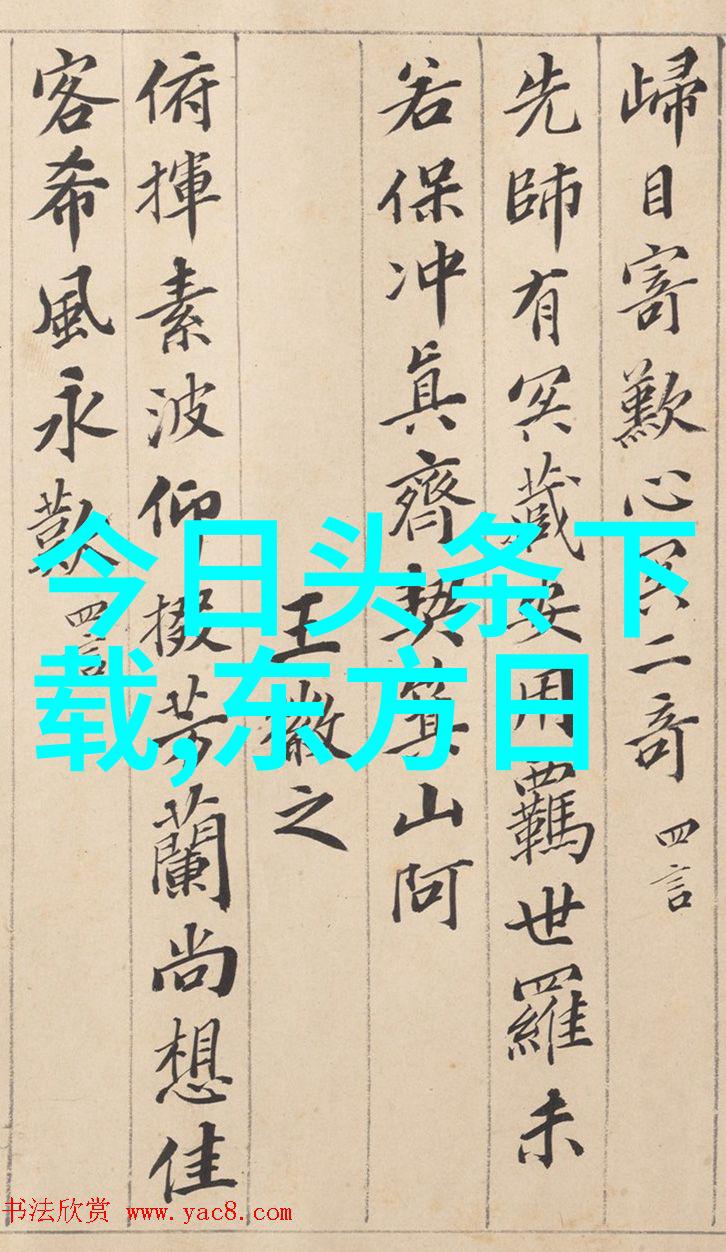 歸目寄歎心冥二奇 四言
先師有冥藏安用羈世羅未
若保冲眞齊契箕山阿
王徽之
俯揮素波仰掇芳蘭尚想佳
客希風永歎 四言
今日头条下
载,东方日
书法欣赏 www.yac8.com